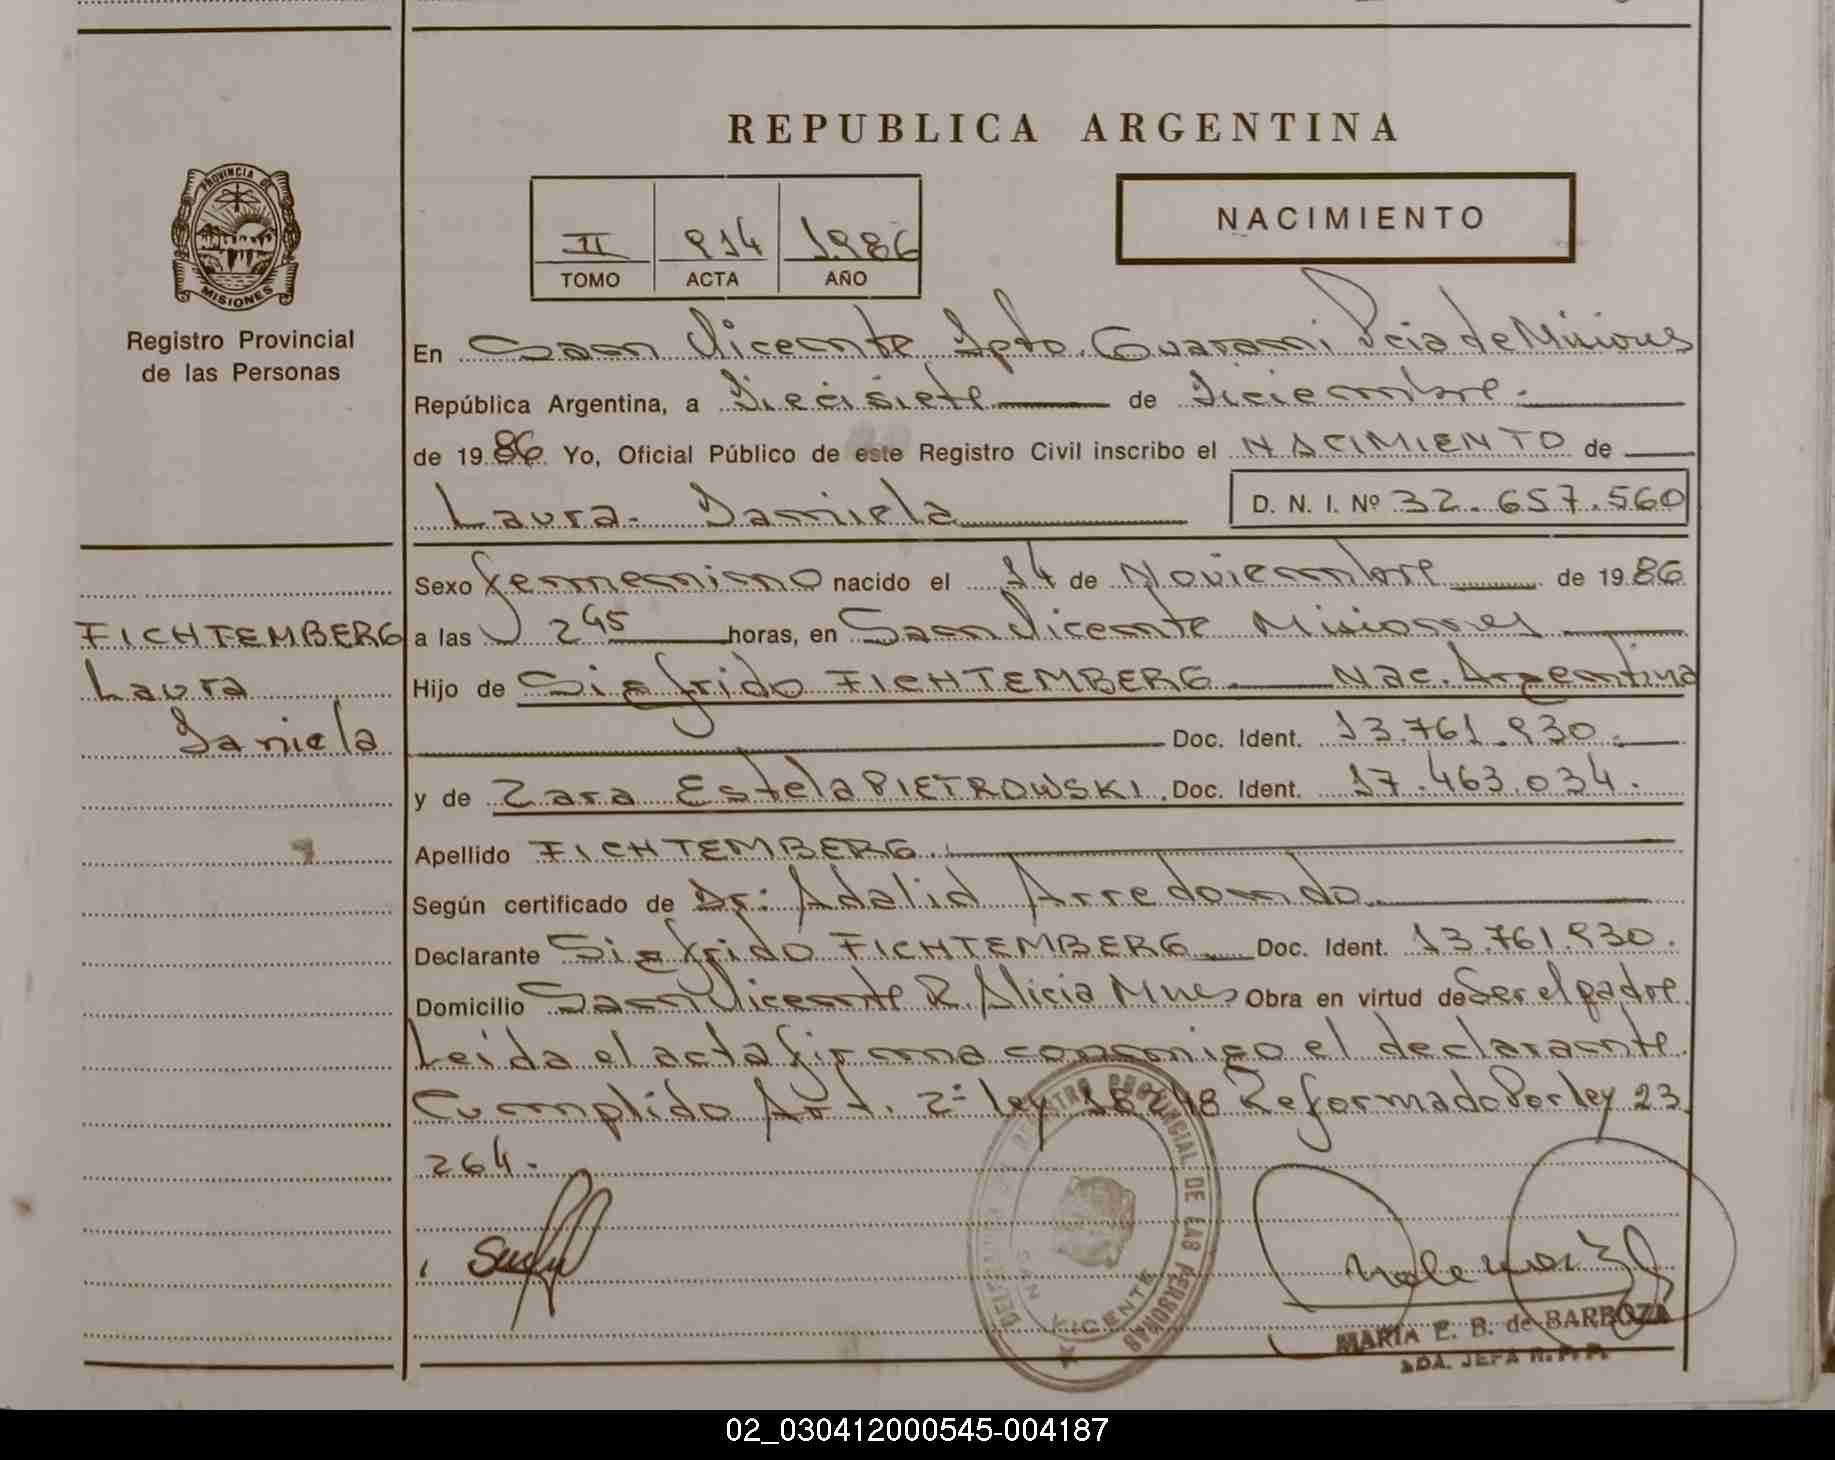 REPUBLICA ARGENTINA
PROVINCIA DE
MISIONES
Registro Provincial
de las Personas
II 914 1.986
TOMO ACTA AÑO
NACIMIENTO
En San Vicente Dpto. Guarani Pcia de Misiones
República Argentina, a Diecisiete de Diciembre.
de 1986 Yo, Oficial Público de este Registro Civil inscribo el NACIMIENTO de
Laura Daniela D. N. I. Nº 32.657.560
FICHTEMBERG
Laura
Daniela
Sexo femenino nacido el 14 de Noviembre de 1986
a las 2 45 horas, en San Vicente Misiones
Hijo de Sigfrido FICHTEMBERG Nac. Argentina
Doc. Ident. 13.761.930.
y de Zara Estela PIETROWSKI. Doc. Ident. 17.463.034.
Apellido FICHTEMBERG.
Según certificado de Dr: Adalid Arredondo.
Declarante Sigfrido FICHTEMBERG Doc. Ident. 13.761.930.
Domicilio San Vicente R. Alicia Mnes Obra en virtud de Ser el padre
Leida el acta firma conmigo el declarante.
Cumplido Art. 2º ley 18248 Reformado Por ley 23.
264.
REGISTRO PROVINCIAL DE LAS PERSONAS
SAN VICENTE
MARIA E. B. de BARBOZA
02_030412000545-004187